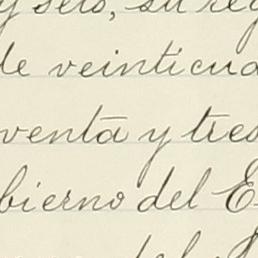 y seis, su reg
de veinticua
venta y tres
bierno del E
del